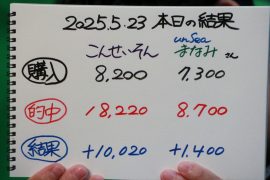 2025.5.23 本日の結果
こんせいそん unSea まなみさん
購入 8,200 7,300
的中 18,220 8.700
結果 +10,020 +1.400